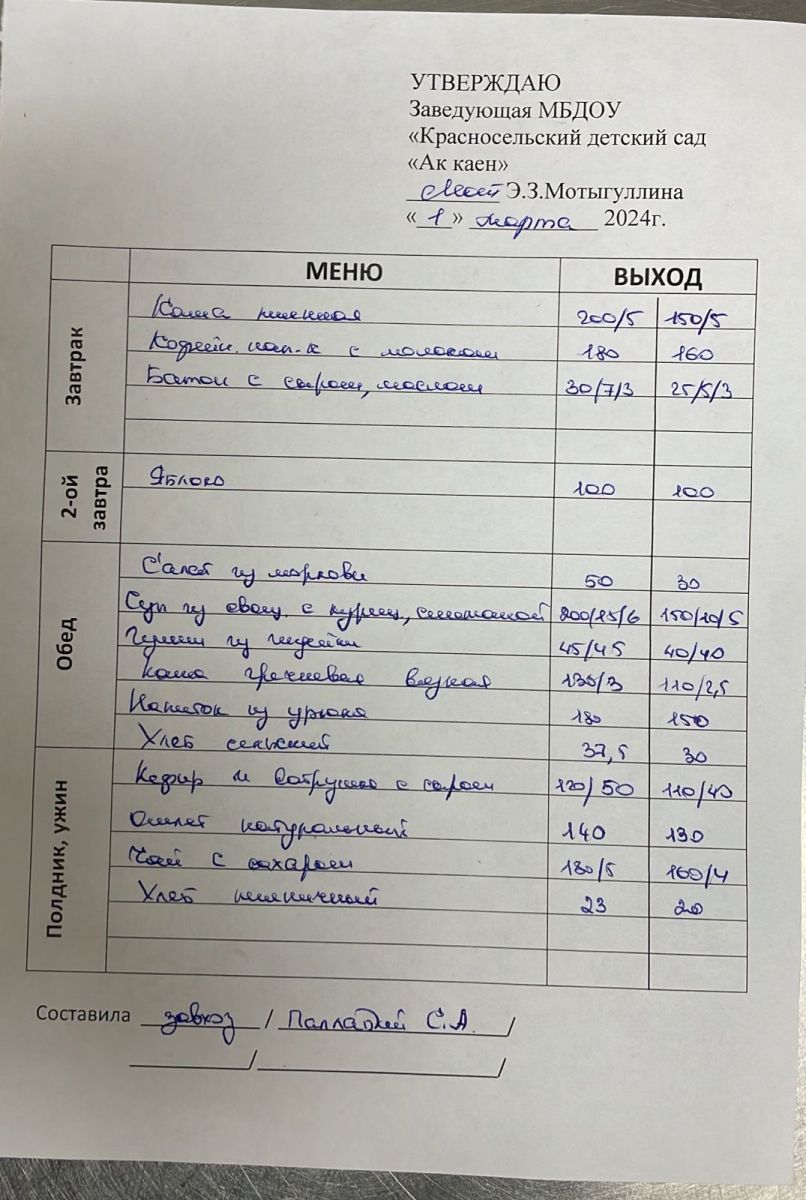 УТВЕРЖДАЮ
Заведующая МБДОУ
«Красносельский детский сад
«Ак каен»
Э.З.Мотыгуллина
«1» марта 2024г.
МЕНЮ ВЫХОД
Завтрак
Каша пшенная 200/5 150/5
Кофейн. нап-к с молоком 180 160
Батон с сыром, маслом 30/7/3 25/5/3
2-ой завтра
Яблоко 100 100
Обед
Салат из моркови 50 30
Суп из овощ. с куриц., сметаной 200/15/6 150/10/5
Гуляш из индейки 45/45 40/40
Каша гречневая вязкая 130/3 110/2,5
Напиток из урюка 180 150
Хлеб сельский 37,5 30
Полдник, ужин
Кефир и ватрушка с сыром 120/50 110/40
Омлет натуральный 140 130
Чай с сахаром 180/5 160/4
Хлеб пшеничный 23 20
Составила завхоз / Палладий С.А. /